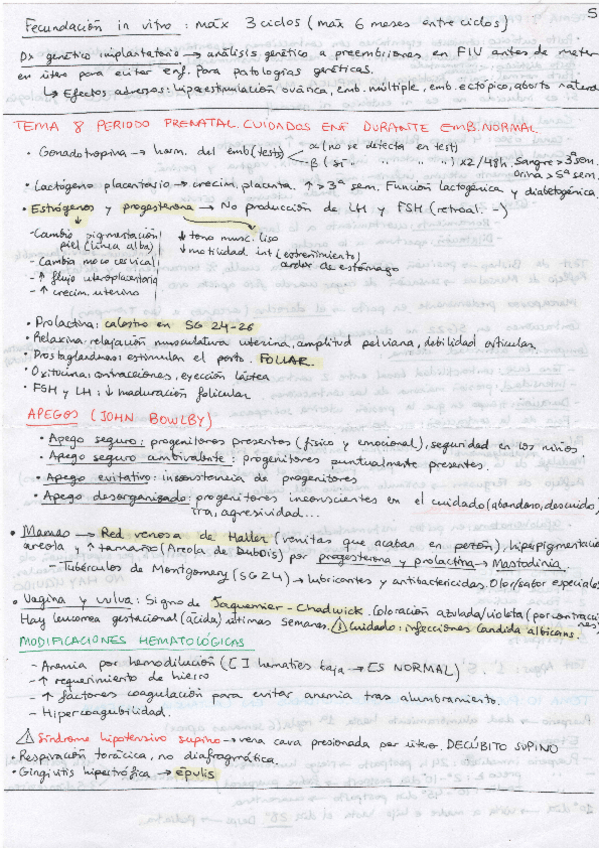 5
Fecundación in vitro: máx 3 ciclos (máx 6 meses entre ciclos)
D> genético implantatorio → análisis genético a preembriones en FIV antes de meter
en útero para evitar enf. Para patologías genéticas.
↳ Efectos adversos: hiperestimulación ovárica, emb. múltiple, emb. ectópico, aborto natural
TEMA 8 PERIODO PRENATAL. CUIDADOS ENF DURANTE EMB. NORMAL.
• Gonadotropina → horm. del emb (tests) α (no se detecta en test)
β (sí " " ") x2/48h. Sangre > 3ª sem.
orina > 5ª sem.
• Lactógeno placentario → crecim. placenta. ↑ > 3ª sem. Función lactogénica y diabetogénica.
• Estrógenos y progesterona → No producción de LH y FSH (retroal. -)
- Cambio pigmentación ↓ tono musc. liso
piel (línea alba) ↓ motilidad int (estreñimiento)
- Cambia moco cervical ardor de estómago
- ↑ flujo uteroplacentario
- ↑ crecim. uterino
• Prolactina: calostro en SG 24-26
• Relaxina: relajación musculatura uterina, amplitud pelviana, debilidad articular.
• Prostaglandinas: estimulan el parto. FOLLAR.
• Oxitocina: contracciones, eyección láctea
• FSH y LH: ↓ maduración folicular
APEGOS (JOHN BOWLBY)
• Apego seguro: progenitores presentes (físico y emocional), seguridad en los niños
• Apego seguro ambivalente: progenitores puntualmente presentes.
• Apego evitativo: inconstancia de progenitores
• Apego desorganizado: progenitores inconscientes en el cuidado (abandono, descuido)
Ira, agresividad...
• Mamas → Red venosa de Haller (venitas que acaban en pezón), hiperpigmentación
areola y ↑ tamaño (Areola de DuBois) por progesterona y prolactina → Mastodinia.
- Tubérculos de Montgomery (SG 24) → lubricantes y antibactericidas. Olor/sabor especiales
• Vagina y vulva: Signo de Jaquemier-Chadwick. Coloración azulada/violeta (por contracciones)
Hay leucorrea gestacional (ácida) últimas semanas. ⚠ Cuidado: infecciones candida albicans.
MODIFICACIONES HEMATOLÓGICAS
- Anemia por hemodilución ([ ] hematíes baja → ES NORMAL)
- ↑ requerimiento de hierro
- ↑ factores coagulación para evitar anemia tras alumbramiento.
- Hipercoagubilidad.
⚠ Síndrome hipotensivo supino → vena cava presionada por útero. DECÚBITO SUPINO
• Respiración torácica, no diafragmática.
• Gingivitis hipertrófica → épulis